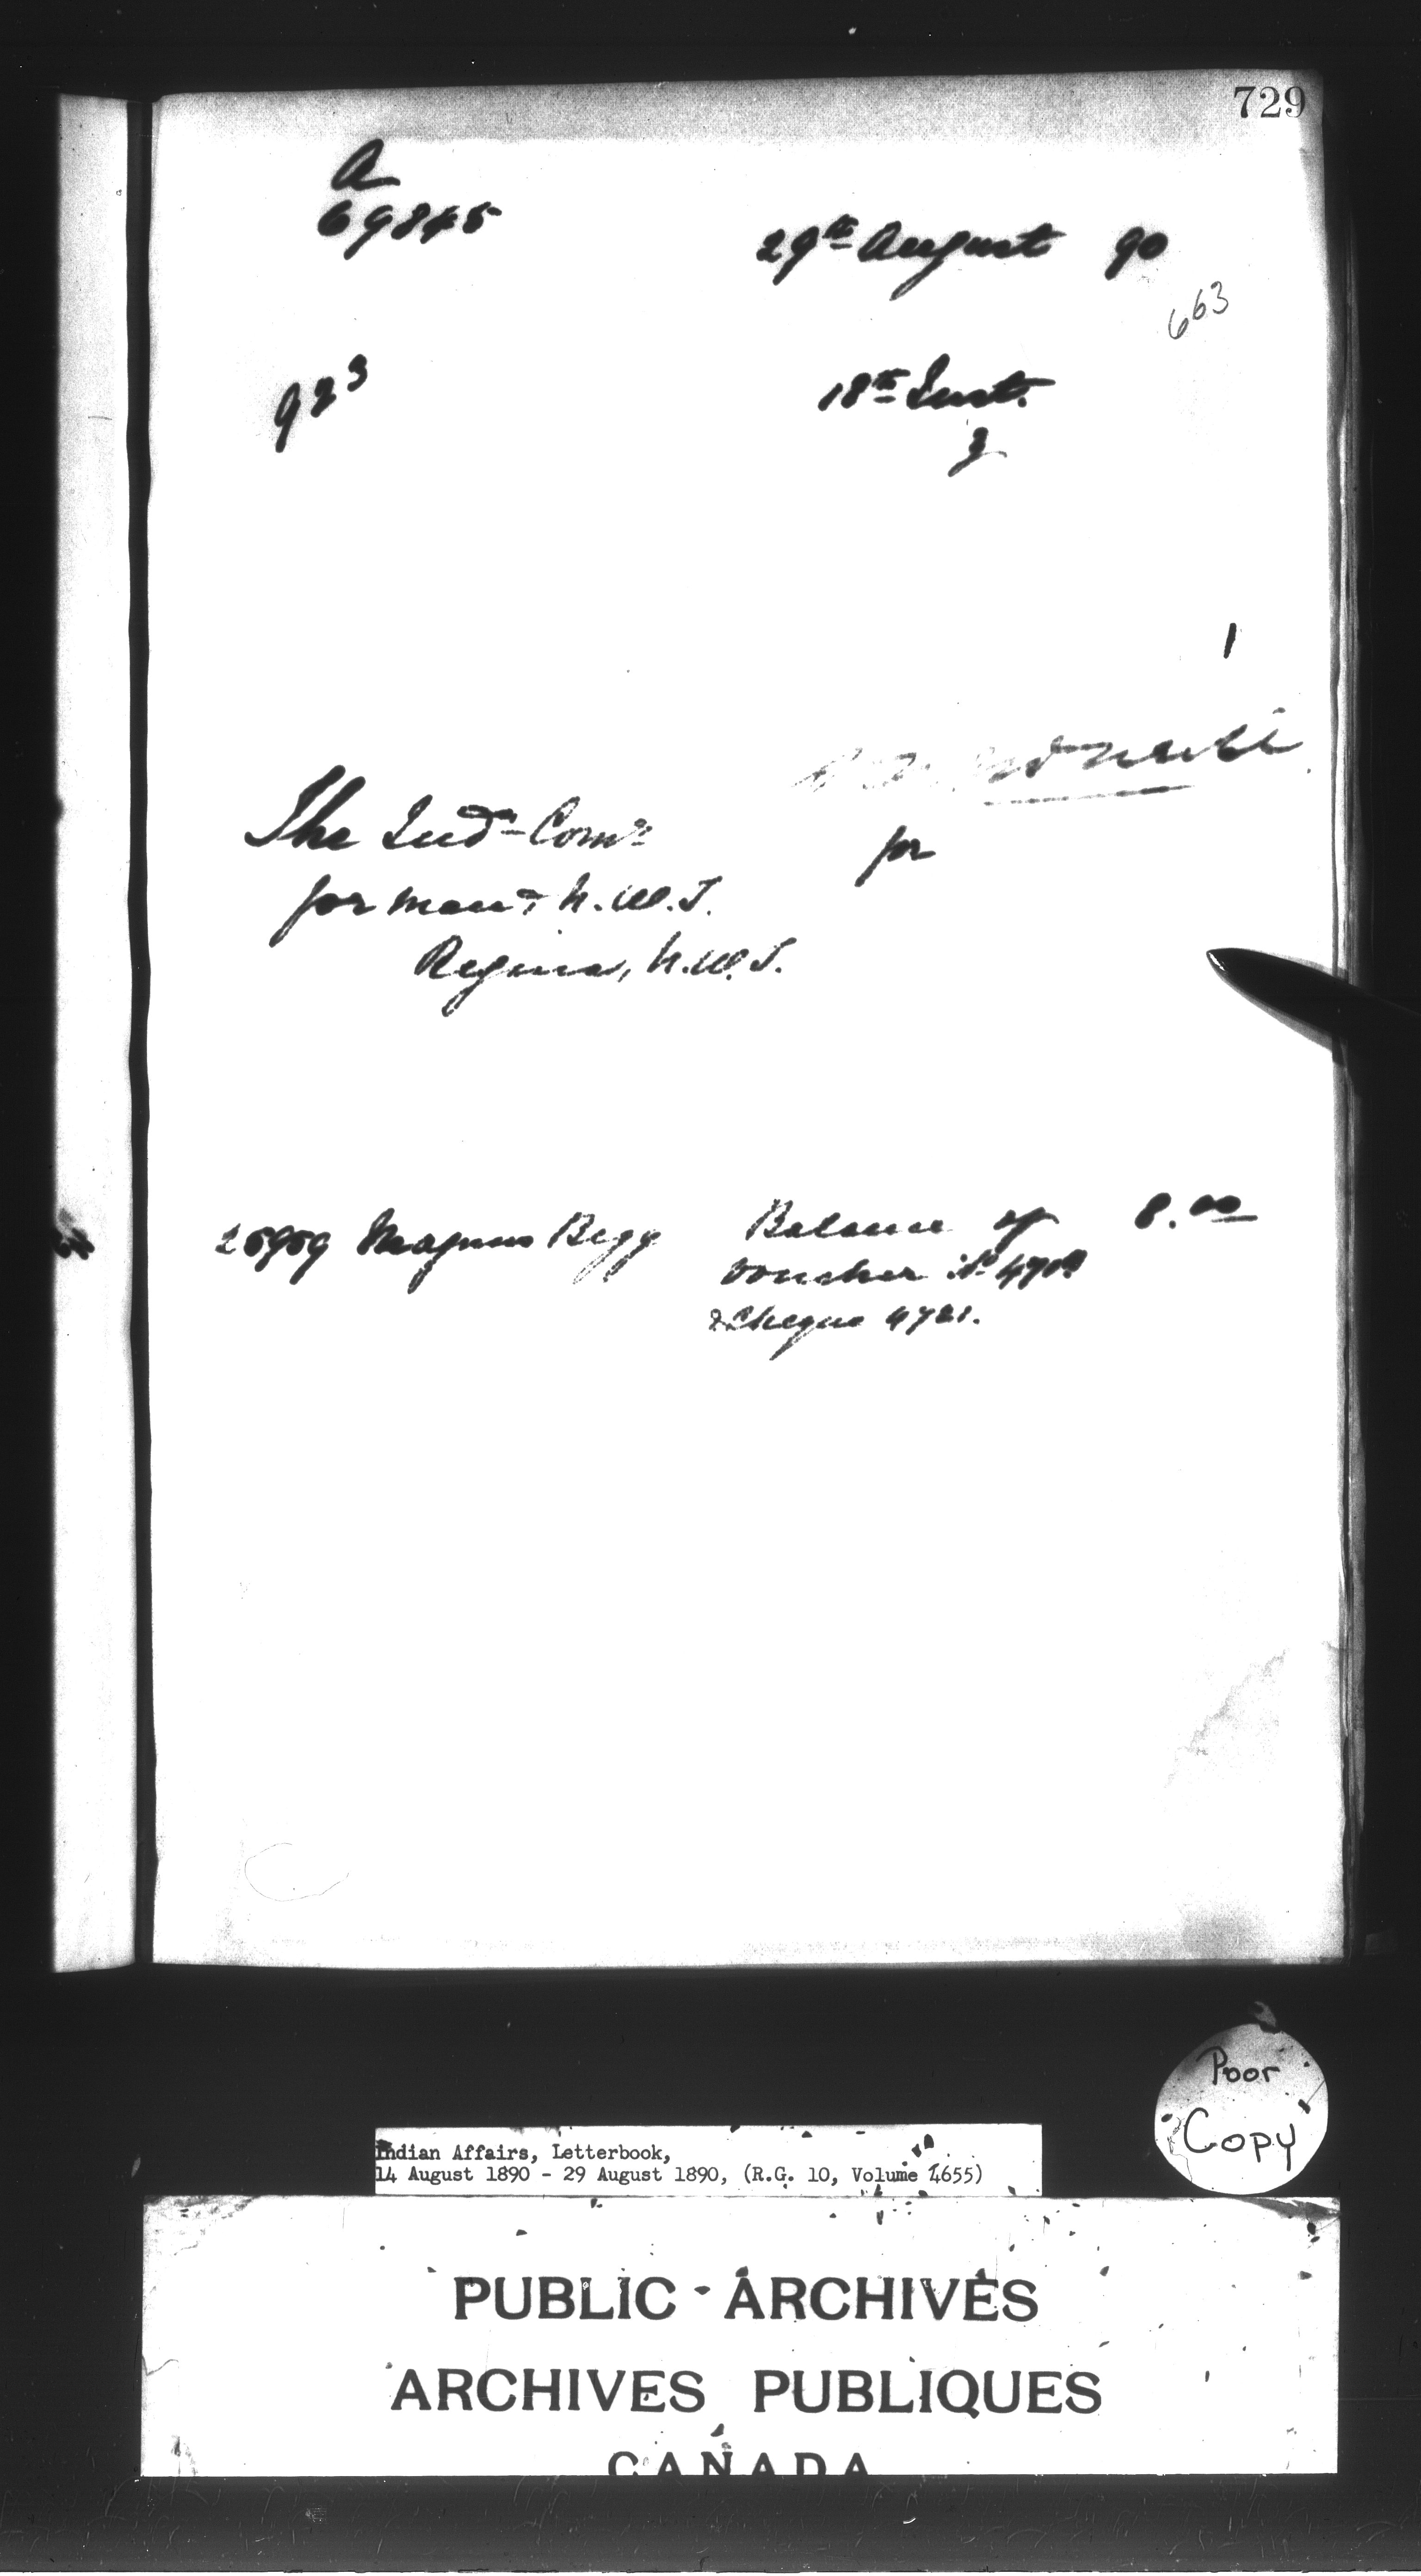 729
A
69845
29th August 90
663
923
18th Inst.
3
1
The Indn Comr
for
for Man & N.W.T.
Regina, N.W.T.
25959 Magnus Begg Balance of 8.00
voucher No
& Cheque 4721.
Poor
Copy
Indian Affairs, Letterbook,
14 August 1890 - 29 August 1890, (R.G. 10, Volume 4655)
PUBLIC - ARCHIVES
ARCHIVES PUBLIQUES
CANADA